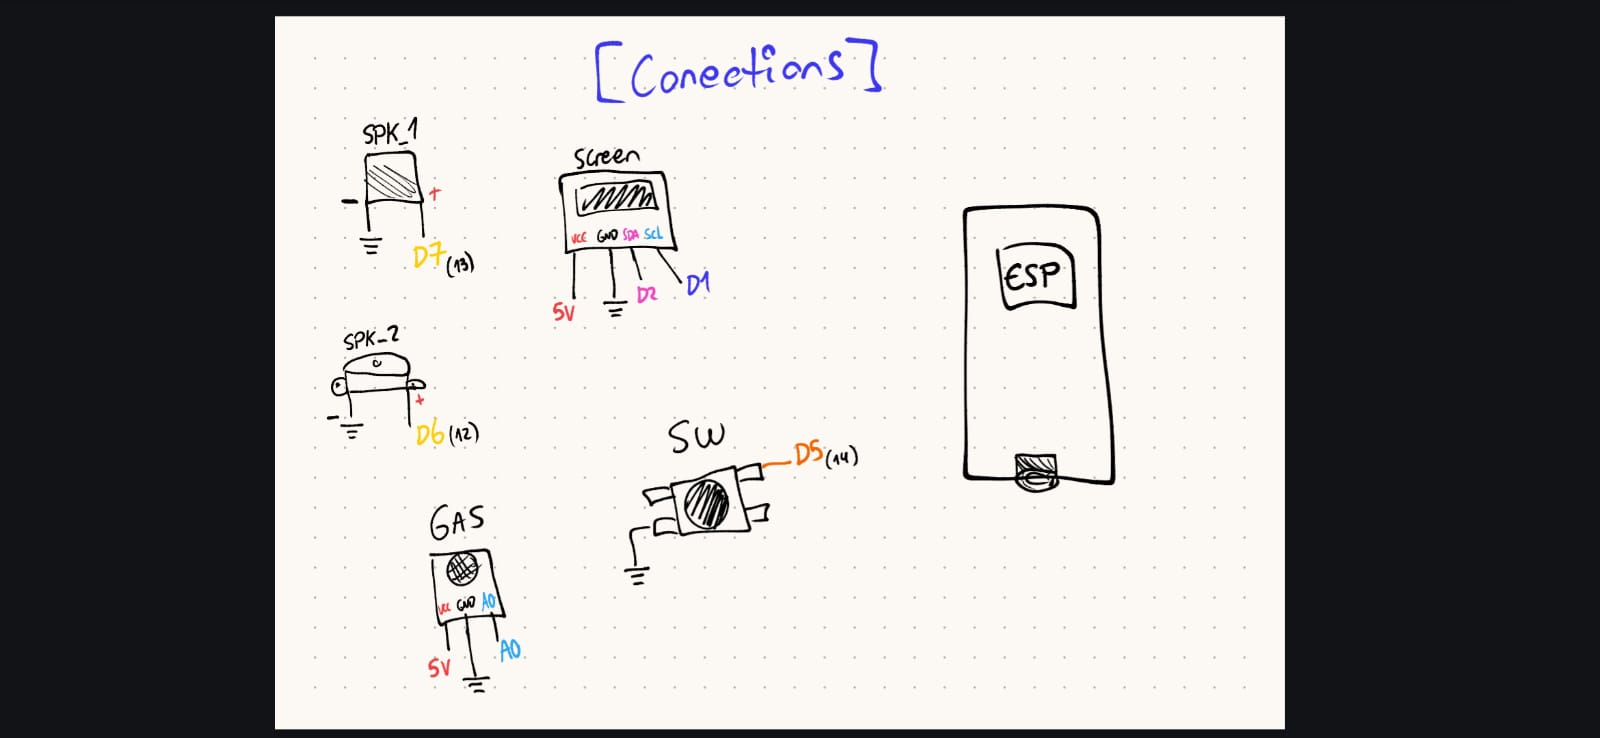 [Conections]
SPK_1
-
+
D7 (13)
Screen
VCC GND SDA SCL
5V
D2
D1
ESP
SPK_2
-
+
D6 (12)
SW
D5 (14)
GAS
VCC GND A0
5V
A0